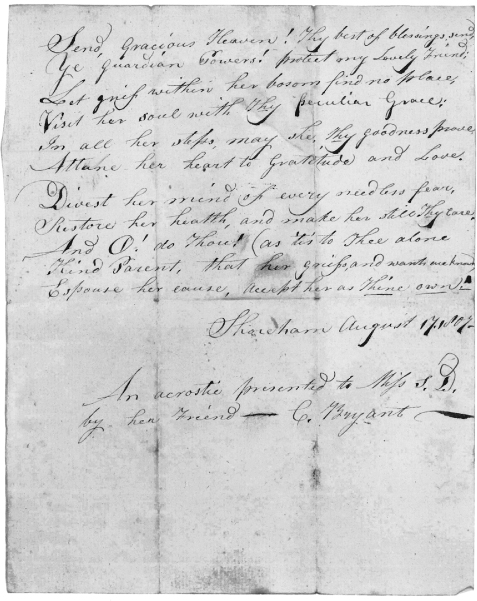 Send, Gracious Heaven! Thy best of blessings send,
Ye Guardian Powers! protect my Lovely Friend;
Let griefs within her bosom find no place,
Visit her soul with Thy Peculiar Grace;
In all her steps, may she, Thy goodness prove,
Attune her heart to Gratitude and Love.
Divest her mind of every needless fear,
Restore her health, and make her still Thy care
And O! do Thou! (as 'tis to Thee alone
Kind Parent, that her griefs and wants are known
Espouse her cause, Accept her as Thine own.
Shoreham August 17. 1807
An acrostic presented to Miss S. D.
by her Friend — C. Bryant —